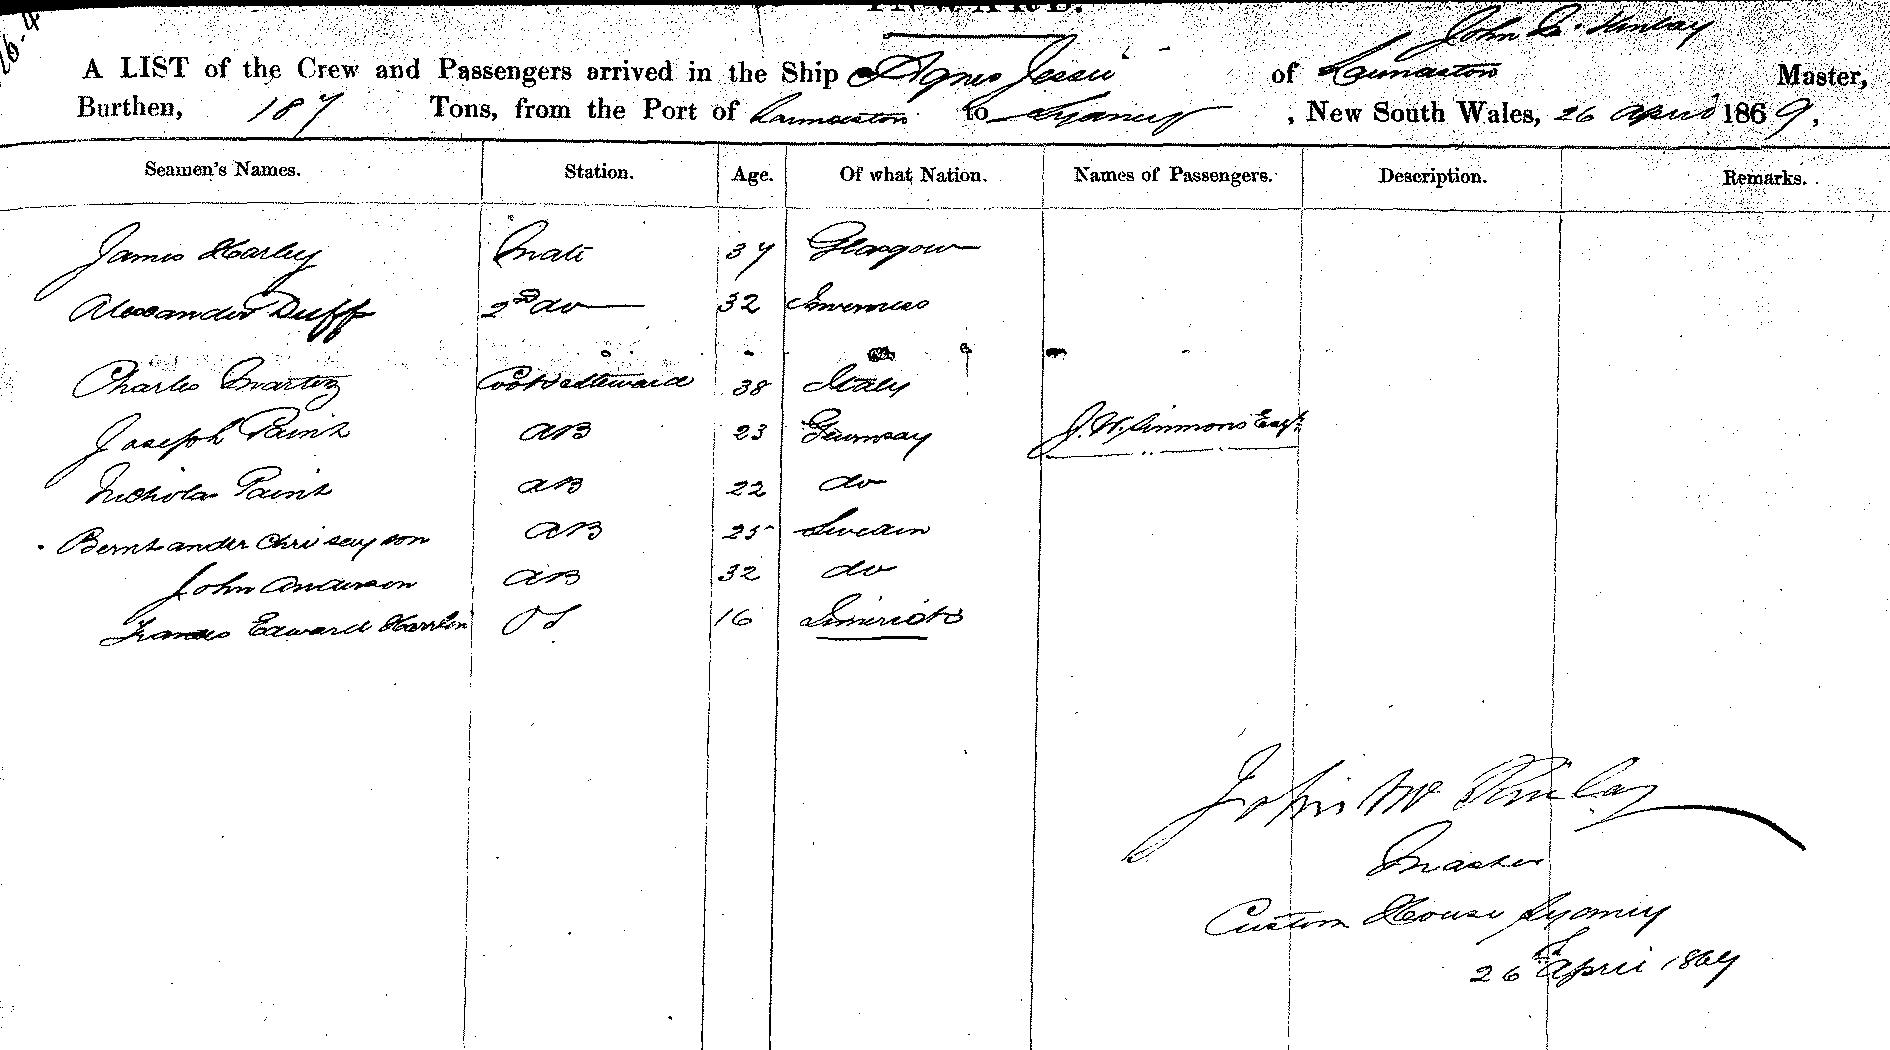 26-4
INWARD.
John Mc Kinlay
A LIST of the Crew and Passengers arrived in the Ship Agnes Jessie of Launceston Master,
Burthen, 187 Tons, from the Port of Launceston to Sydney, New South Wales, 26 April 1869,
Seamen's Names. Station. Age. Of what Nation. Names of Passengers. Description. Remarks.
James Harley Mate 37 Glasgow
Alexander Duff 2nd do 32 Inverness
Charles Martiz Cook & Steward 38 Italy
Joseph Paint AB 23 Guernsay J. W. Simmons Esqr
Nicholas Paint AB 22 do
Berntander AB 25 Swedin
John Anderson AB 32 do
Francis Edward OS 16 Limirick
John Mc Kinlay
Master
Custom House Sydney
26th April 1869